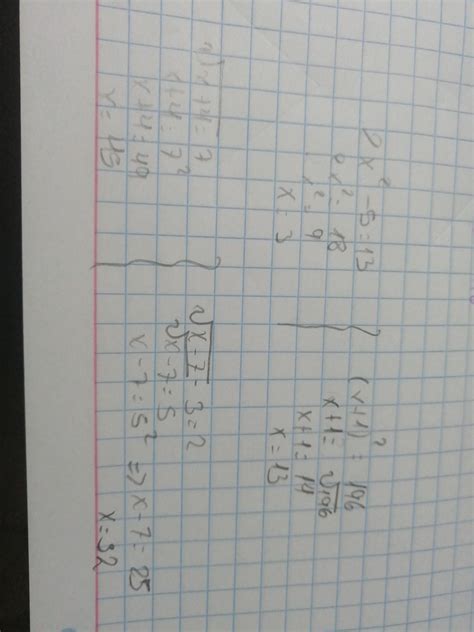 2x² - 5 = 13
2x² = 18
x² = 9
x = 3
(x+1)² = 196
x+1 = √196
x+1 = 14
x = 13
√x+4 = 7
x+4 = 7²
x+4 = 49
x = 45
√x-7 - 3 = 2
√x-7 = 5
x-7 = 5² => x-7 = 25
x = 32